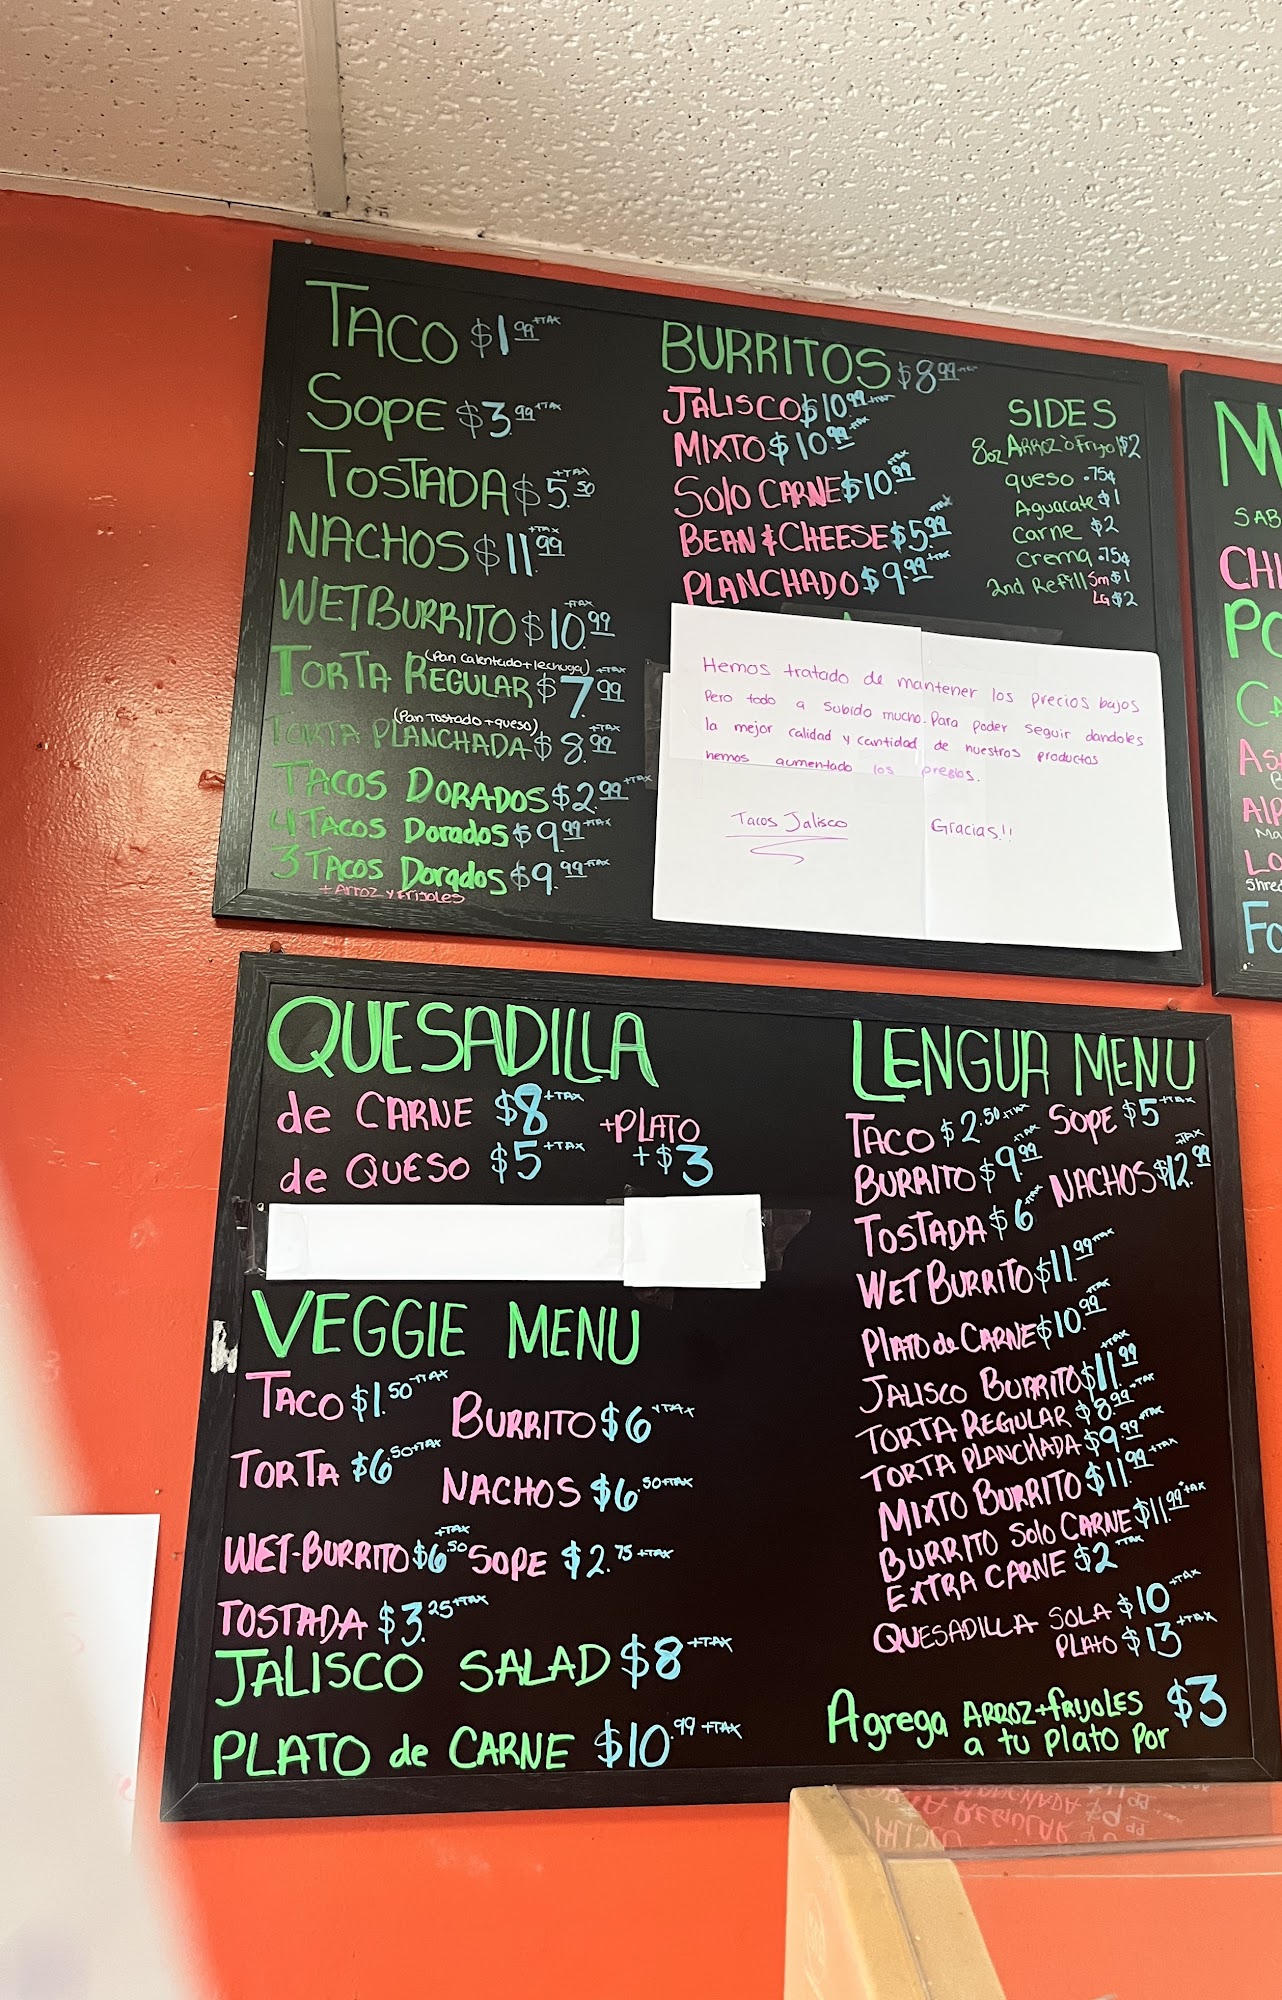 TACO $1.99 +TAX
SOPE $3.99 +TAX
TOSTADA $5.50 +TAX
NACHOS $11.99 +TAX
WET BURRITO $10.99 +TAX
(Pan calentado + lechuga)
TORTA REGULAR $7.99 +TAX
(Pan Tostado + queso)
TORTA PLANCHADA $8.99 +TAX
TACOS DORADOS $2.99 +TAX
4 TACOS Dorados $9.99 +TAX
3 TACOS Dorados $9.99 +TAX
+ Arroz y frijoles
BURRITOS $8.99 +TAX
JALISCO $10.99 +TAX
MIXTO $10.99 +TAX
Solo CARNE $10.99 +TAX
BEAN & CHEESE $5.99 +TAX
PLANCHADO $9.99 +TAX
SIDES
8oz ARROZ ò Frijol $2
queso .75¢
Aguacate $1
Carne $2
Crema .75¢
2nd Refill Sm $1
LG $2
Hemos tratado de mantener los precios bajos
Pero todo a subido mucho. Para poder seguir dandoles
la mejor calidad y cantidad de nuestros productos
hemos aumentado los precios.
Tacos Jalisco Gracias!!
M
SAB
CHI
PO
CA
AS
AlP
Ma
LO
Shred
Fo
QUESADILLA
de CARNE $8 +TAX
de QUESO $5 +TAX
+PLATO
+$3
VEGGIE MENU
TACO $1.50 +TAX BURRITO $6 +TAX
TORTA $6.50 +TAX NACHOS $6.50 +TAX
WET-BURRITO $6.50 +TAX SOPE $2.75 +TAX
TOSTADA $3.25 +TAX
JALISCO SALAD $8 +TAX
PLATO de CARNE $10.99 +TAX
LENGUA MENU
TACO $2.50 +TAX SOPE $5 +TAX
BURRITO $9.99 +TAX NACHOS $12.99 +TAX
TOSTADA $6 +TAX
WET BURRITO $11.99 +TAX
PLATO de CARNE $10.99 +TAX
JALISCO BURRITO $11.99 +TAX
TORTA REGULAR $8.99 +TAX
TORTA PLANCHADA $9.99 +TAX
MIXTO BURRITO $11.99 +TAX
BURRITO Solo CARNE $11.99 +TAX
EXTRA CARNE $2 +TAX
QUESADILLA SOLA $10 +TAX
PLATO $13 +TAX
Agrega ARROZ + frijoles $3
a tu plato por